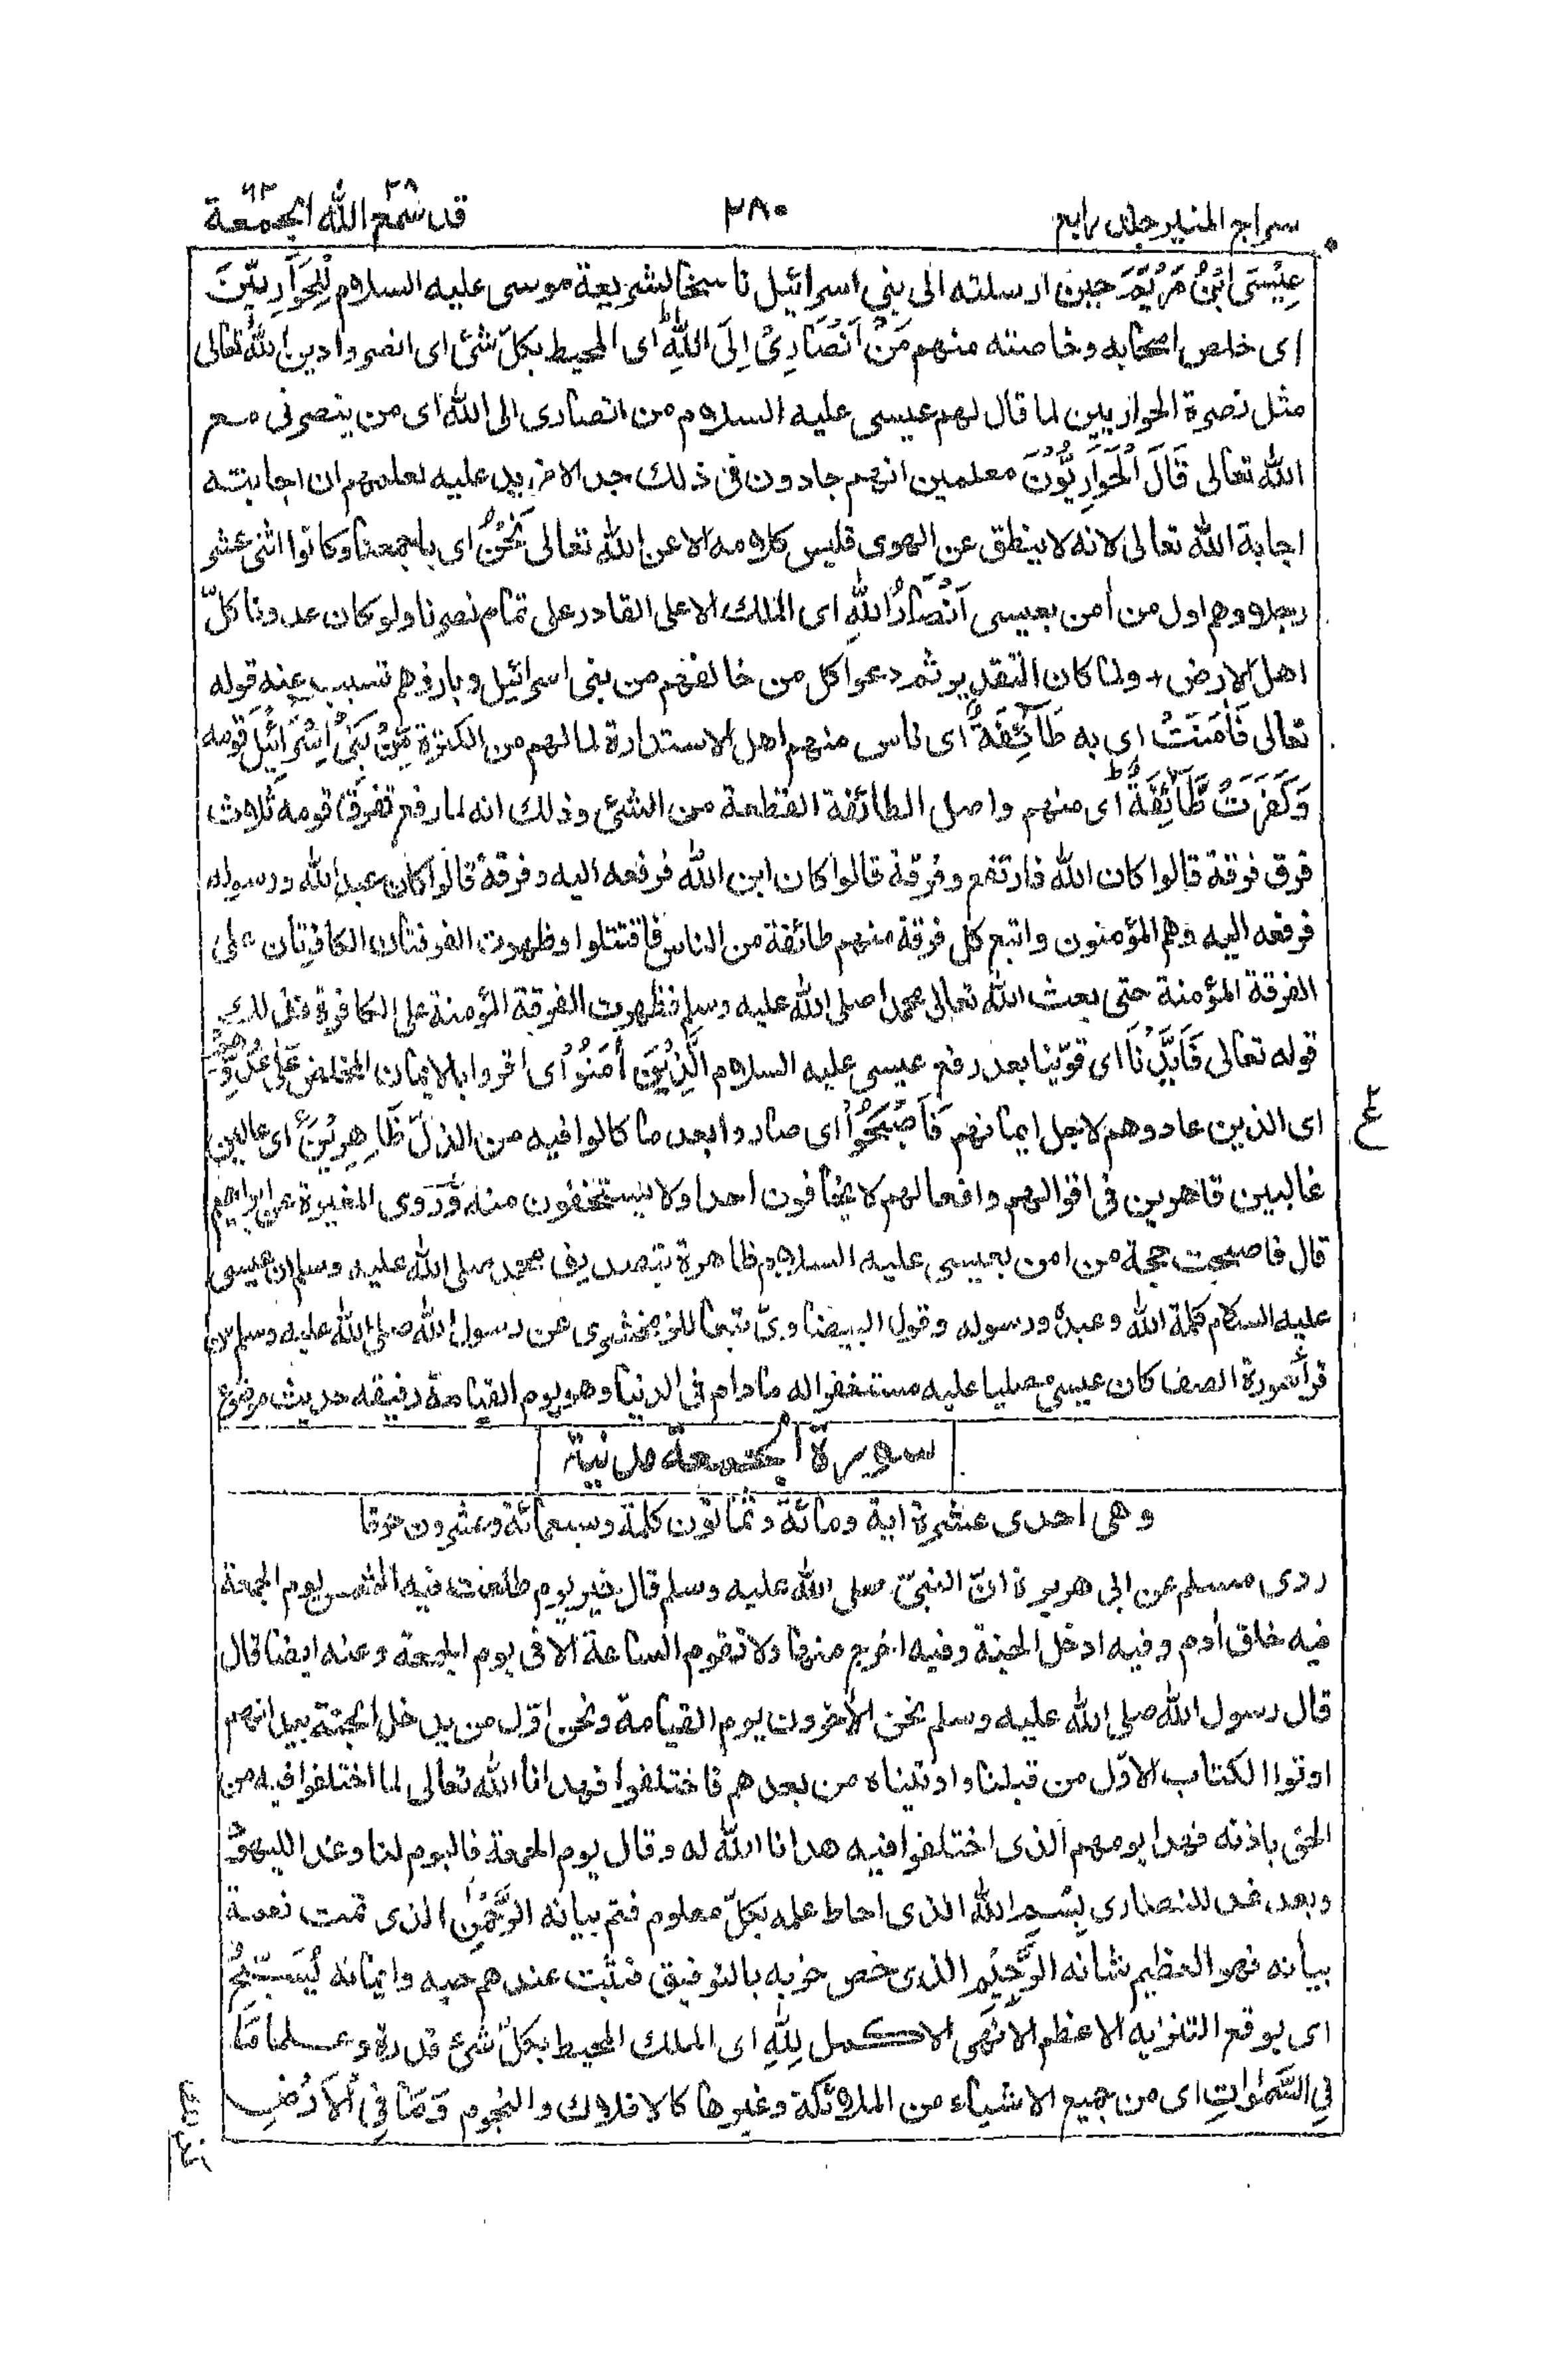 سراج المنير جلد رابع ٢٨٠ قد سمع الله ٢٨ الجمعة ٦٢
عِيْسَى ابْنُ مَرْيَمَ حين ارسلته الى بني اسرائيل ناسخا لشريعة موسى عليه السلام لِلْحَوَارِيّيْنَ
اى خلص اصحابه وخاصته منهم مَنْ اَنْصَارِىْ اِلَى اللّٰهِ ط اى المحيط بكلّ شئ اى انصروا دين الله تعالى
مثل نصرة الحواريين لما قال لهم عيسى عليه السلام من انصارى الى الله اى من ينصرنى مع
الله تعالى قَالَ الْحَوَارِيُّوْنَ معلمين انهم جادون فى ذلك جدا لا مزيد عليه لعلمهم ان اجابته
اجابة الله تعالى لانه لا ينطق عن الهوى فليس كلامه الا عن الله تعالى نَحْنُ اى باجمعنا وكانوا اثنى عشر
رجلا وهم اول من أمن بعيسى اَنْصَارُ اللّٰهِ اى الملك الاعلى القادر على تمام نصرنا ولو كان عدونا كلّ
اهل الارض ولما كان التقدير ثم دعوا كل من خالفهم من بنى اسرائيل وبارزوهم تسبب عنه قوله
تعالى فَاٰمَنَتْ اى به طَآئِفَةٌ اى ناس منهم اهل الاستدارة لما لهم من الكثرة مِّنْ بَنِىْ اِسْرَآئِيْلَ قومه
وَكَفَرَتْ طَّآئِفَةٌ ط اى منهم واصل الطائفة القطعة من الشئ وذلك انه لما رفع تفرق قومه ثلاث
فرق فرقة قالوا كان الله فارتفع وفرقة قالوا كان ابن الله فرفعه اليه وفرقة قالوا كان عبد الله ورسوله
فرفعه اليه وهم المؤمنون واتبع كل فرقة منهم طائفة من الناس فاقتتلوا وظهرت الفرقتان الكافرتان على
الفرقة المؤمنة حتى بعث الله تعالى محمدا صلى الله عليه وسلم فظهرت الفرقة المؤمنة على الكافرة فذلك
قوله تعالى فَاَيَّدْنَا اى قوّينا بعد رفع عيسى عليه السلام الَّذِيْنَ اٰمَنُوْا اى اقروا بالايمان المخلص عَلٰى عَدُوِّهِمْ
اى الذين عادوهم لاجل ايمانهم فَاَصْبَحُوْا اى صاروا بعد ما كانوا فيه من الذلّ ظَاهِرِيْنَ اى عالين
ع
غالبين قاهرين فى اقوالهم وافعالهم لا يخافون احدا ولا يستخفون منه وَرَوى المغيرة عن ابراهيم
قال فاصبحت حجة من امن بعيسى عليه السلام ظاهرة بتصديق محمد صلى الله عليه وسلم ان عيسى
عليه السلام كلمة الله وعبده ورسوله وقول البيضاوىّ تبعا للزمخشرى عن رسول الله صلى الله عليه وسلم من
قرأ سورة الصف كان عيسى مصليا عليه مستغفرا له ما دام فى الدنيا وهو يوم القيامة رفيقه حديث موضوع
سورة الجمعة مدنية
وهى احدى عشرة اية ومائة وثمانون كلمة وسبعمائة وعشرون حرفا
روى مسلم عن ابى هريرة انّ النبىّ صلى الله عليه وسلم قال خير يوم طلعت فيه الشمس يوم الجمعة
فيه خلق أدم وفيه ادخل الجنة وفيه اخرج منها ولا تقوم الساعة الا فى يوم الجمعة وعنه ايضا قال
قال رسول الله صلى الله عليه وسلم نحن الأخرون يوم القيامة ونحن اوّل من يدخل الجنة بيد انهم
اوتوا الكتاب الاوّل من قبلنا واوتيناه من بعدهم فاختلفوا فهدانا الله تعالى لما اختلفوا فيه من
الحق باذنه فهذا يومهم الذى اختلفوا فيه هدانا الله له وقال يوم الجمعة فاليوم لنا وغدا لليهود
وبعد غد للنصارى بِسْمِ اللّٰهِ الذى احاط علمه بكلّ معلوم فتم بيانه الرَّحْمٰنِ الذى تمت نعمة
بيأنه فهو العظيم شانه الرَّحِيْمِ الذى خص حزبه بالتوفيق فثبت عندهم حبه وايمانه يُسَبِّحُ
اى يوقع التنزيه الاعظم الانهى الاكمل لِلّٰهِ اى الملك المحيط بكلّ شئ قدرة وعلما مَا
فِى السَّمٰوٰاتِ اى من جميع الاشياء من الملائكة وغيرها كالافلاك والنجوم وَمَا فِى الْاَرْضِ